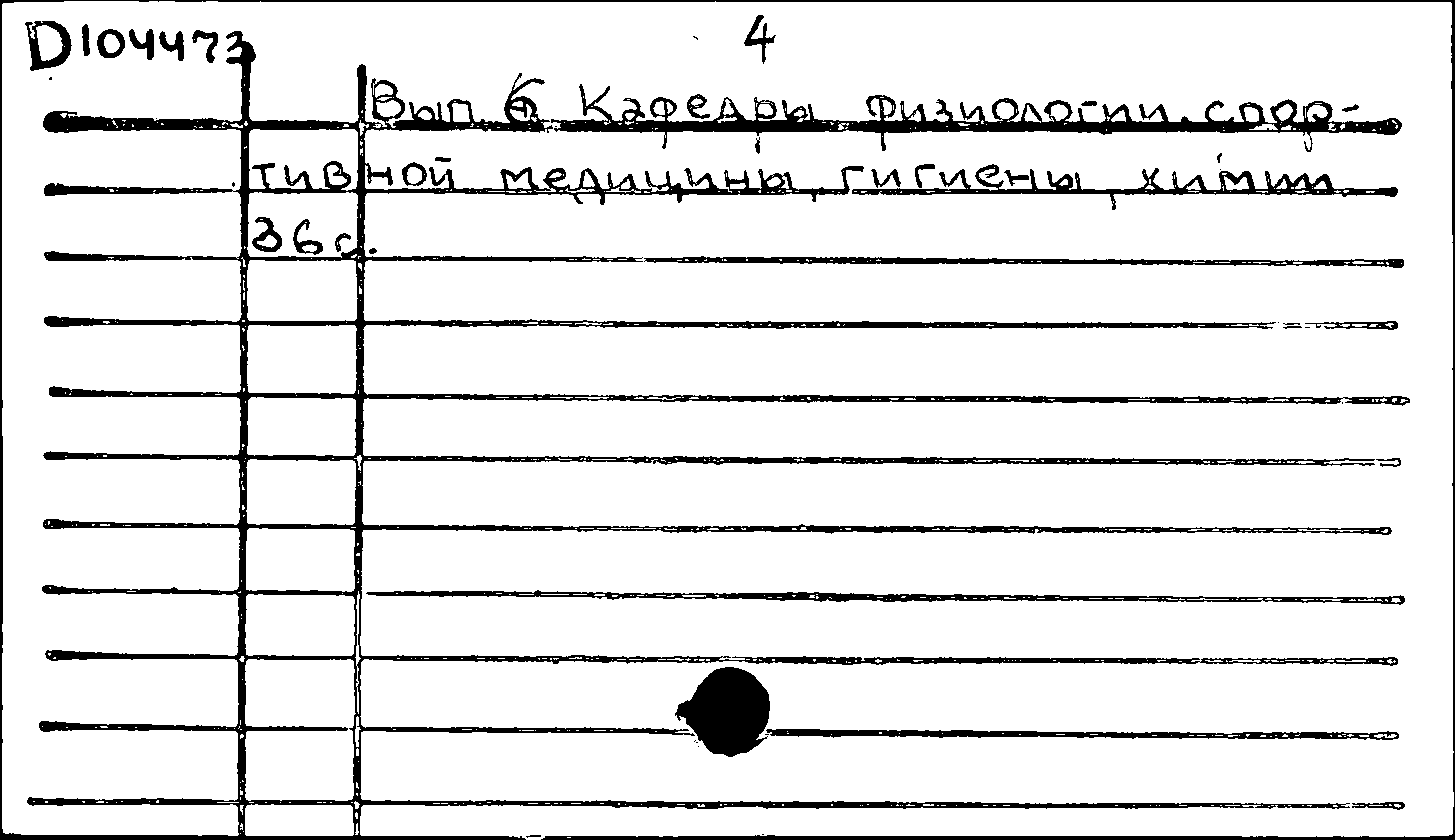 D104473 4
Вып. 6 Кафедры физиологии, спор-
тивной медицины, гигиены, химии
36 с.